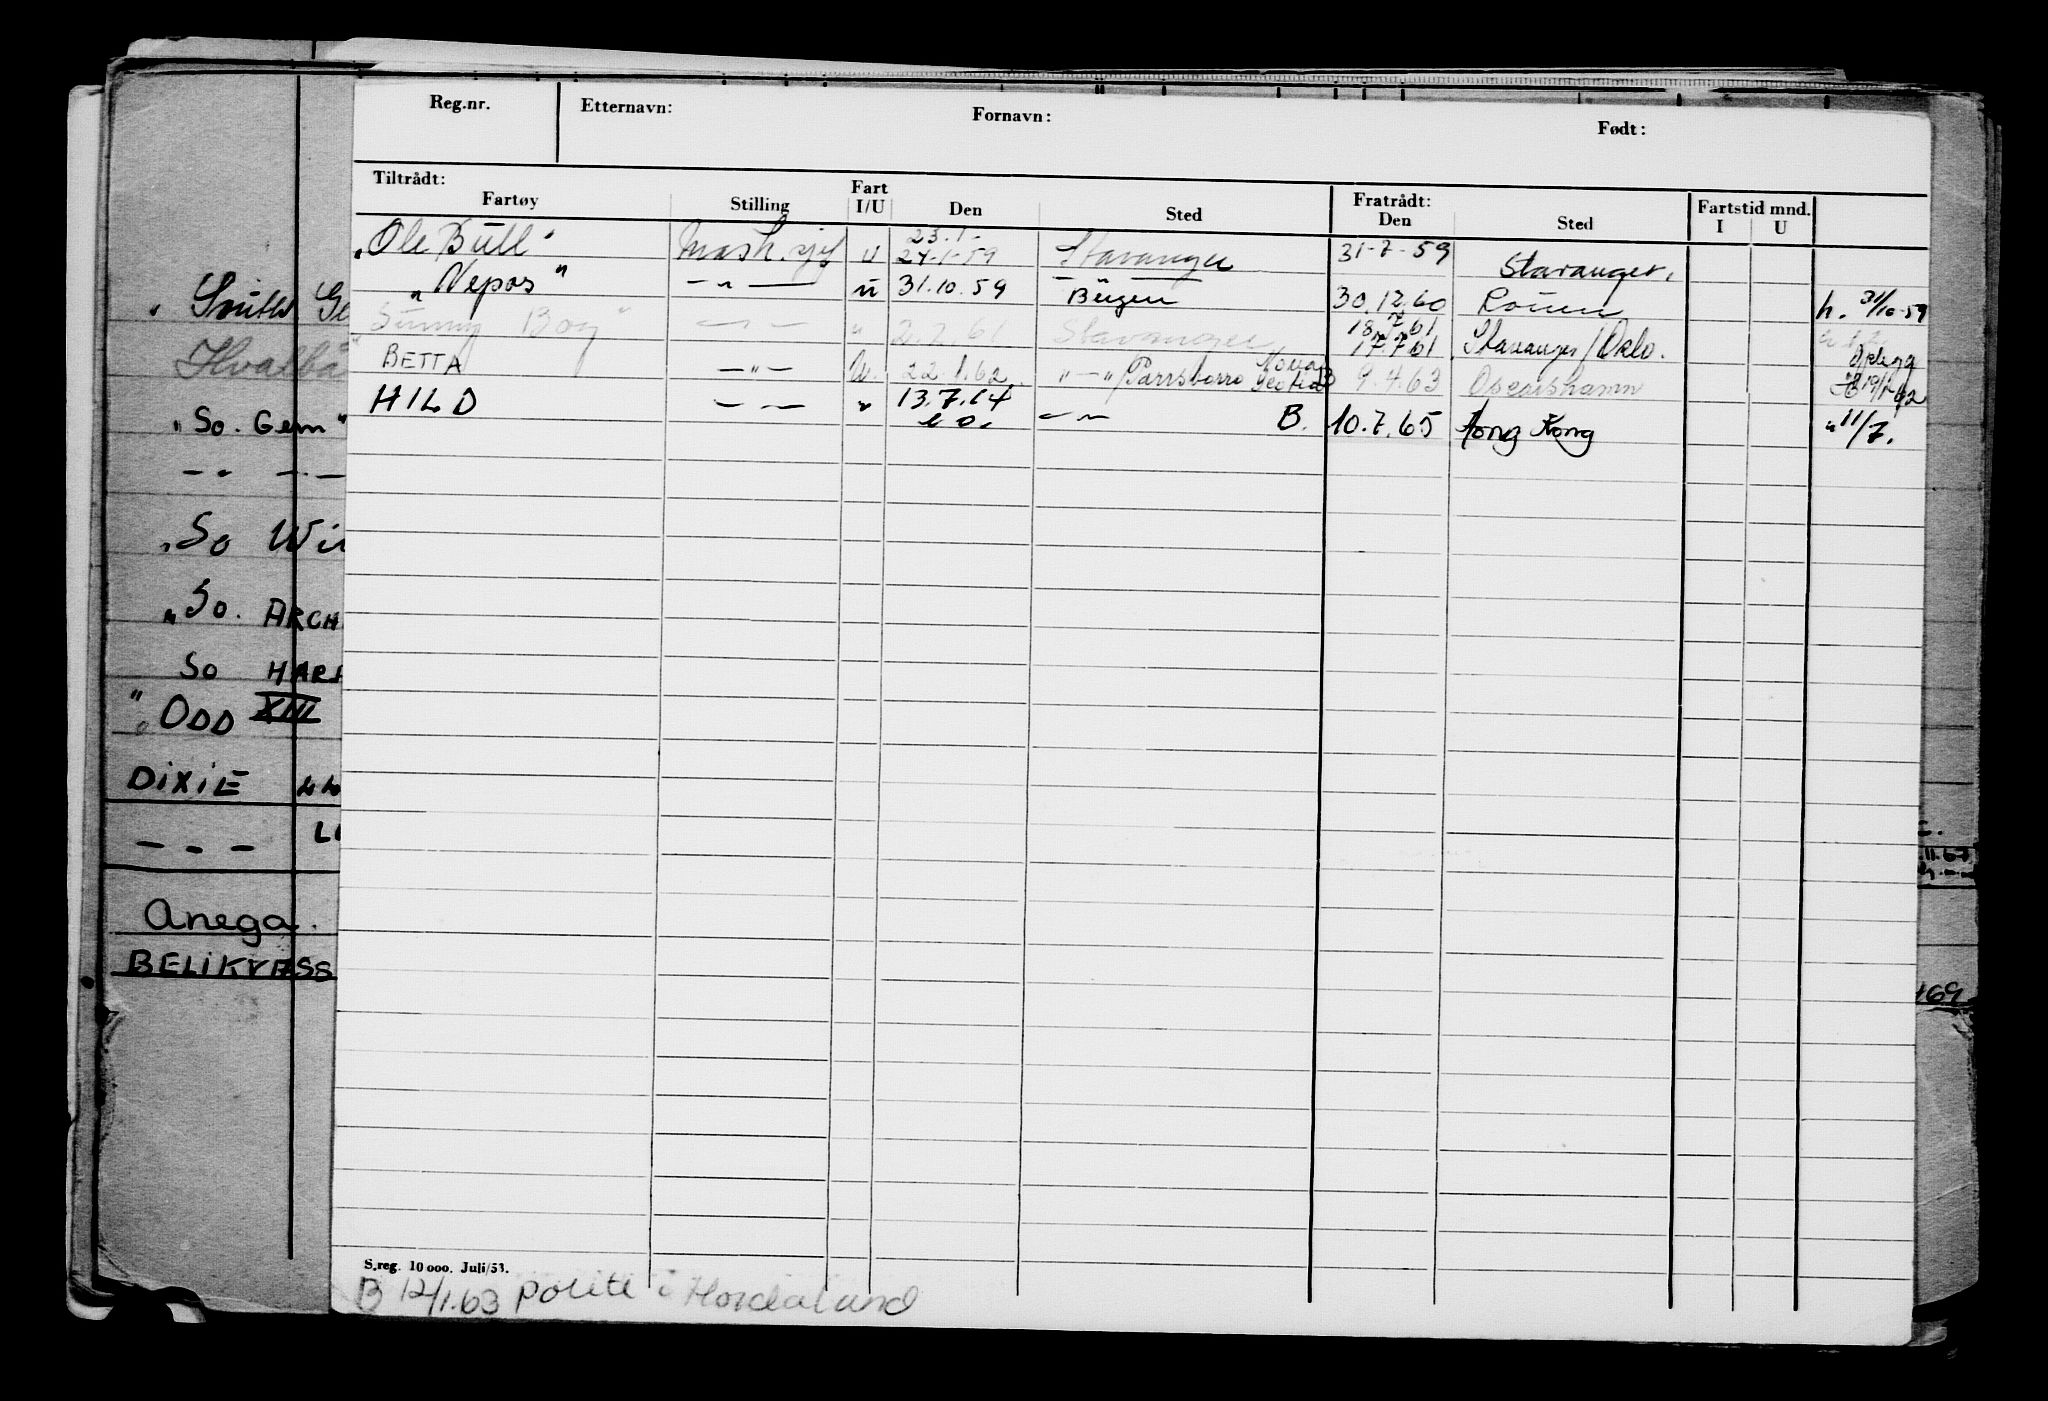 Reg.nr. Etternavn: Fornavn: Født:
Tiltrådt: Fart Fratrådt: Fartstid mnd.
Fartøy Stilling I/U Den Sted Den Sted I U
23.1-
"Ole Bull" Mask.sjef u 24.1.59 Stavanger 31-7-59 Stavanger.
"Nepos" -"- u 31.10.59 Bergen 30.12.60 Rouen h. 31/10-59
18.7.61
Sunny Boy" -"- " 2.2.61 Stavanger 17.7.61 Stavanger/Oslo.
Nova Oplegg
BETTA -"- U. 22.1.62. "-"/Parrsborro Scotia B 9.4.63 Oscarshamn 19/1-62
HILD -"- " 13.7.64 -"- B. 10.7.65 Hong Kong "11/7.
e.o.
"South Ge
Hvalbå
"So. Gem"
-"- -"-
"So Wi
"So. ARCH
So HARA
"ODD XIII
DIXIE
-"-
Anega.
BELIKVESS
.11.67
69
S.reg. 10 000. Juli/53.
B 12/1.63 politi i Hordaland